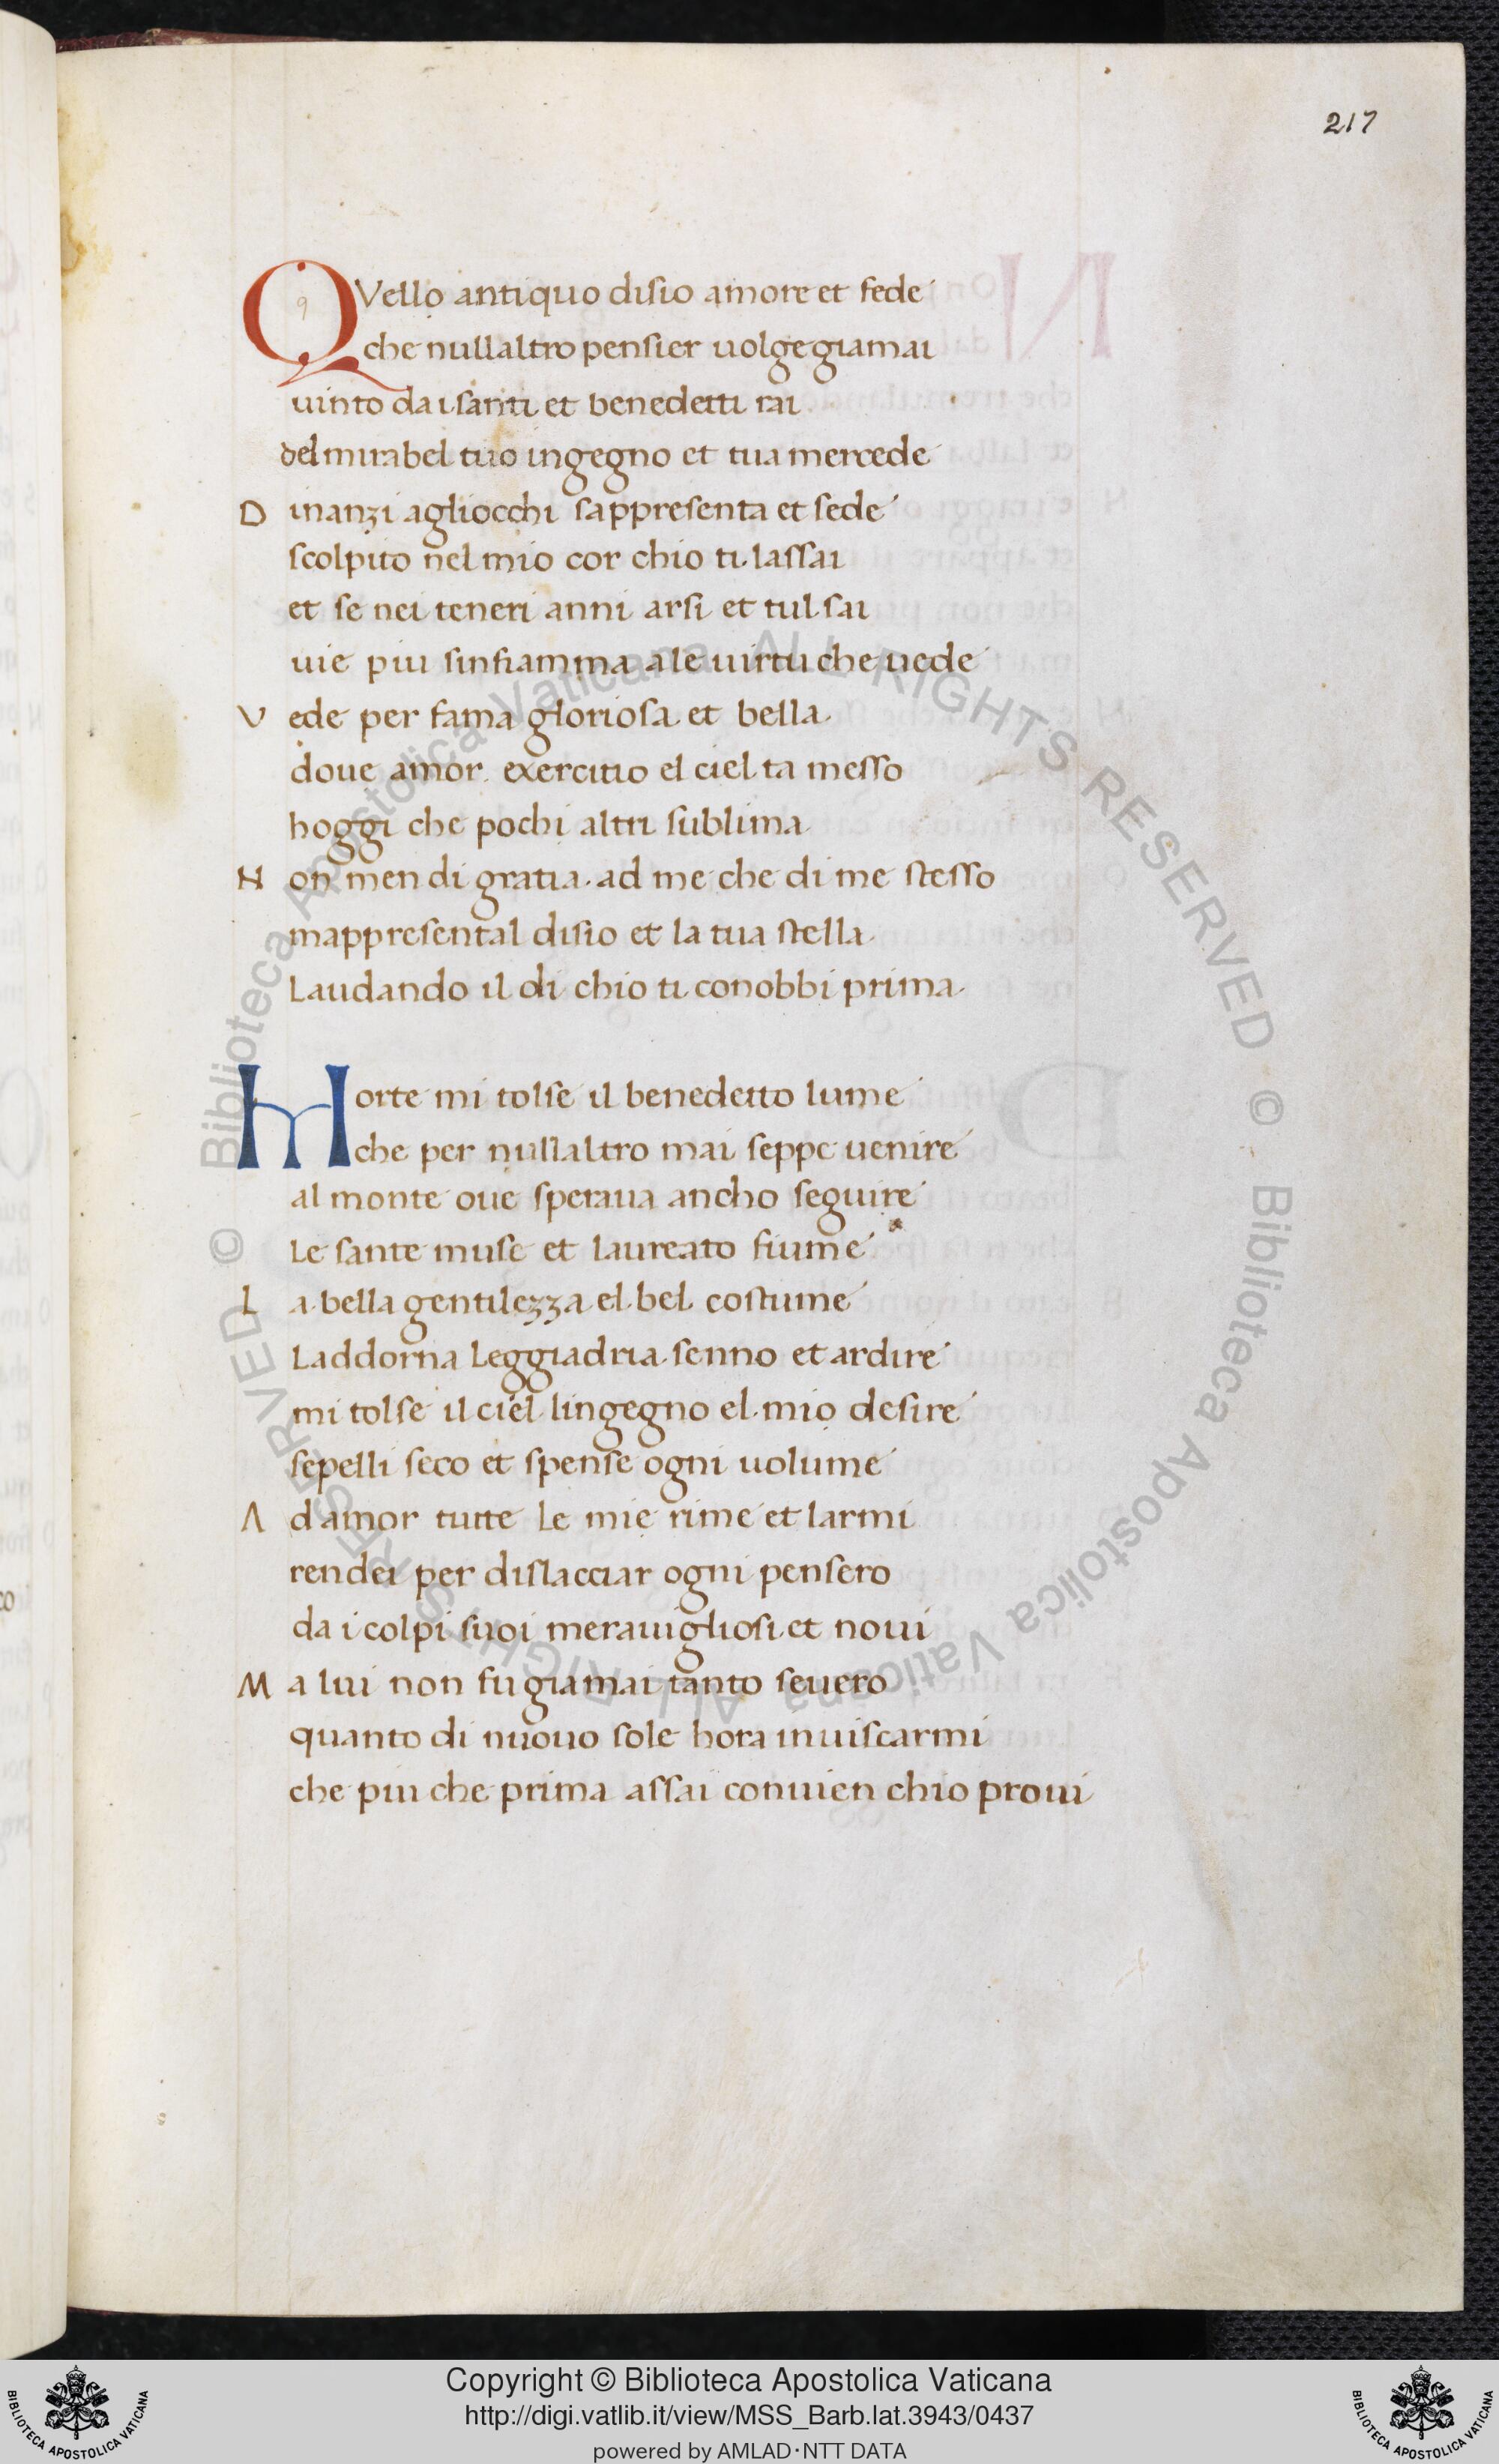 217
QVello antiquo disio amore et fede
che nullaltro pensier uolge giamai
uinto da i santi et benedetti rai
del mirabel tuo ingegno et tua mercede
D inanzi agliocchi sappresenta et sede
scolpito nel mio cor chio ti lassai
et se nei teneri anni arsi et tul sai
uie piu sinfiamma a le uirtu che uede
V ede per fama gloriosa et bella
doue amor exercitio el ciel ta messo
hoggi che pochi altri sublima
N on men di gratia ad me che di me stesso
mappresental disio et la tua stella
Laudando il di chio ti conobbi prima
Morte mi tolse il benedetto lume
che per nullaltro mai seppe uenire
al monte oue speraua ancho seguire
Le sante muse et laureato fiume
L a bella gentilezza el bel costume
Laddorna Leggiadria senno et ardire
mi tolse il ciel lingegno el mio desire
sepelli seco et spense ogni uolume
A d amor tutte Le mie rime et larmi
rendei per dislacciar ogni pensero
da i colpi suoi merauigliosi et noui
M a lui non fu giamai tanto seuero
quanto di nuouo sole hora inuiscarmi
che piu che prima assai conuien chio proui
© Biblioteca Apostolica Vaticana ALL RIGHTS RESERVED © Biblioteca Apostolica Vaticana ALL RIGHTS RESERVED
Copyright © Biblioteca Apostolica Vaticana
http://digi.vatlib.it/view/MSS_Barb.lat.3943/0437
powered by AMLAD·NTT DATA
BIBLIOTECA APOSTOLICA VATICANA
BIBLIOTECA APOSTOLICA VATICANA